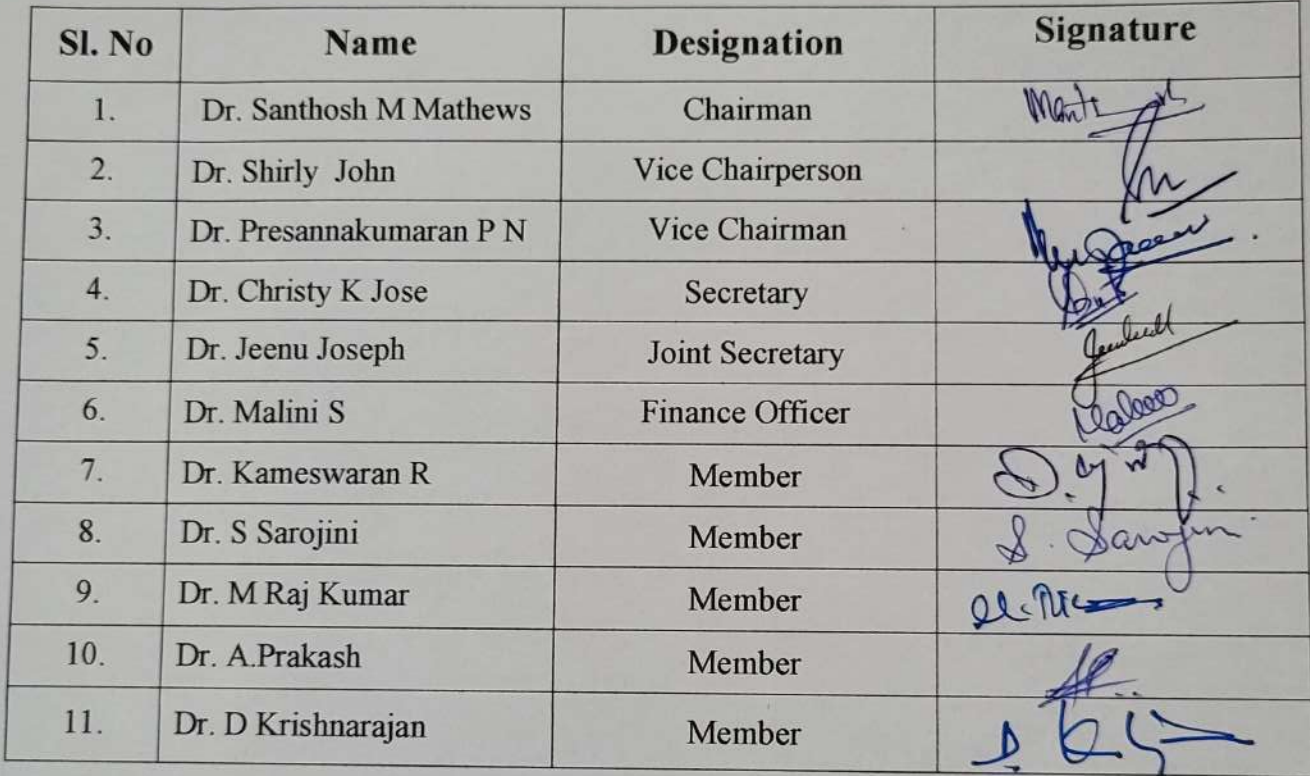 Sl. No Name Designation Signature
1. Dr. Santhosh M Mathews Chairman
2. Dr. Shirly John Vice Chairperson
3. Dr. Presannakumaran P N Vice Chairman
4. Dr. Christy K Jose Secretary
5. Dr. Jeenu Joseph Joint Secretary
6. Dr. Malini S Finance Officer
7. Dr. Kameswaran R Member
8. Dr. S Sarojini Member S. Sarojini
9. Dr. M Raj Kumar Member
10. Dr. A.Prakash Member
11. Dr. D Krishnarajan Member